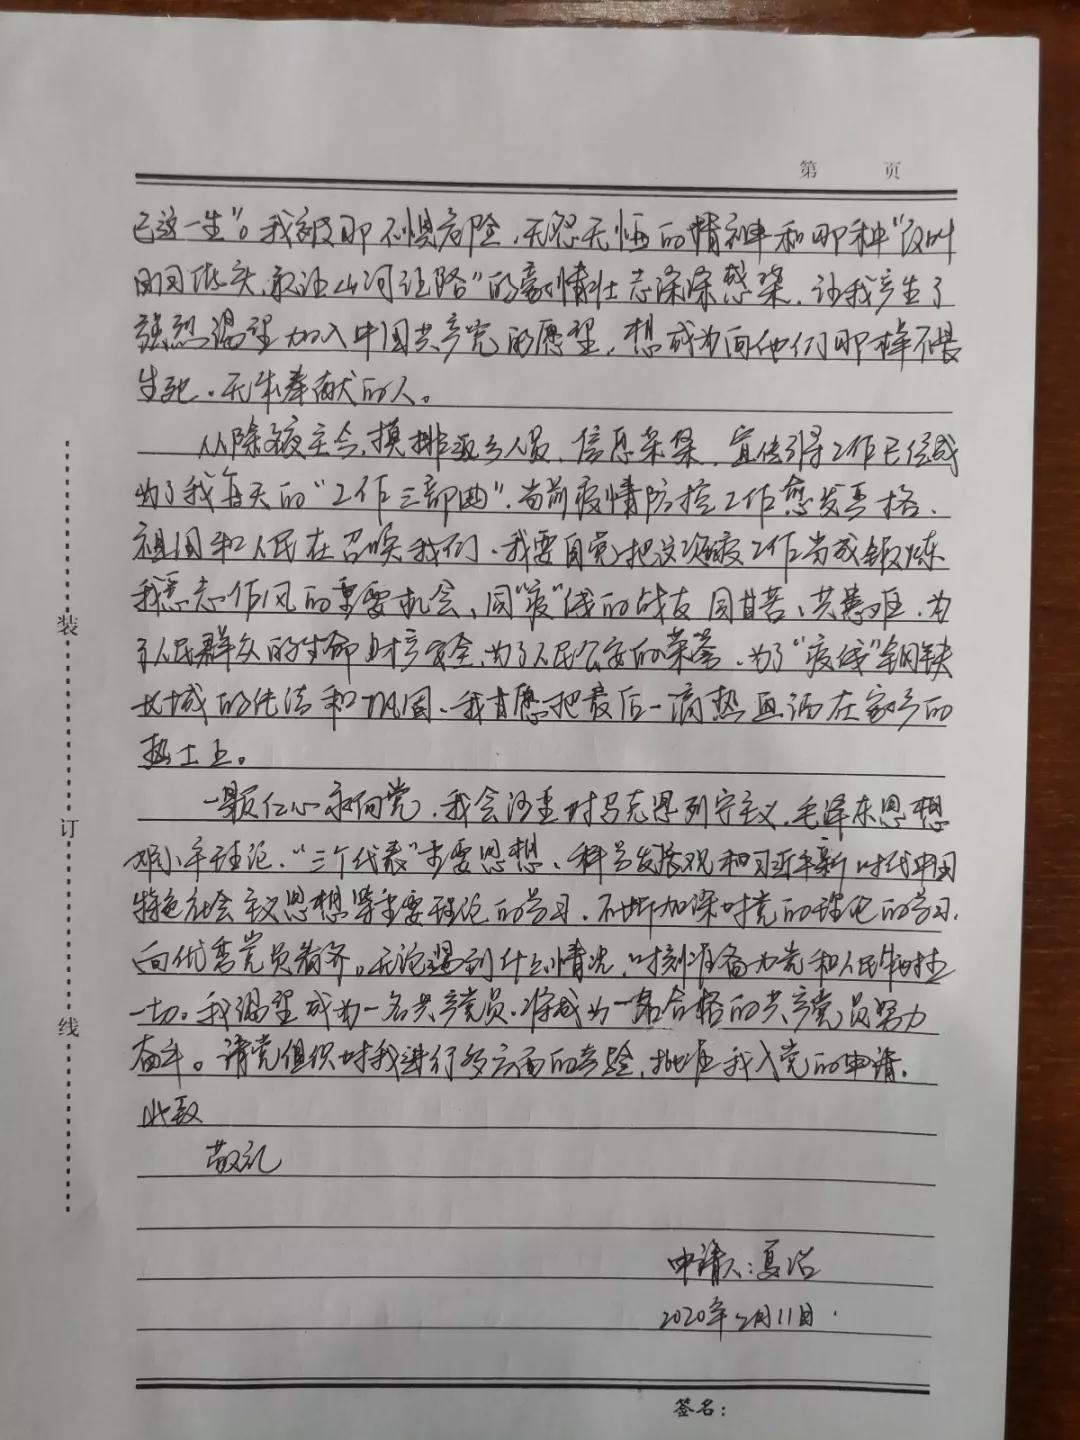 第 页
己这一生”。我被那不惧危险、无怨无悔的精神和那种“没叫
日月换天,敢让山河让路”的豪情壮志深深感染,让我产生了
强烈渴望加入中国共产党的愿望,想成为向他们那样不畏
生死、无私奉献的人。
从除夜至今,摸排返乡人员、信息采集、宣传引导工作已经成
为了我每天的“工作三部曲”,当前疫情防控工作愈发严格、
祖国和人民在召唤我们、我要自觉把这次战疫工作当成锻炼
我意志作风的重要机会、同“疫”线的战友同甘苦、共患难、为
了人民群众的生命财产安全、为了人民公安的荣誉、为了“疫线”钢铁
长城的传洁和巩固、我甘愿把最后一滴热血洒在家乡的
热土上。
一颗仁心永向党,我会注重对马克思列宁主义、毛泽东思想
邓小平理论、“三个代表”重要思想、科学发展观和习近平新时代中国
特色社会主义思想等重要理论的学习,不断加深对党的理论的学习、
向优秀党员看齐。无论遇到什么情况,时刻准备为党和人民牺牲
一切。我渴望成为一名共产党员、将成为一名合格的共产党员努力
奋斗。请党组织对我进行多方面的考验,批准我入党的申请。
此致
敬礼
申请人:夏浩
2020年2月11日.
签名:
装
订
线